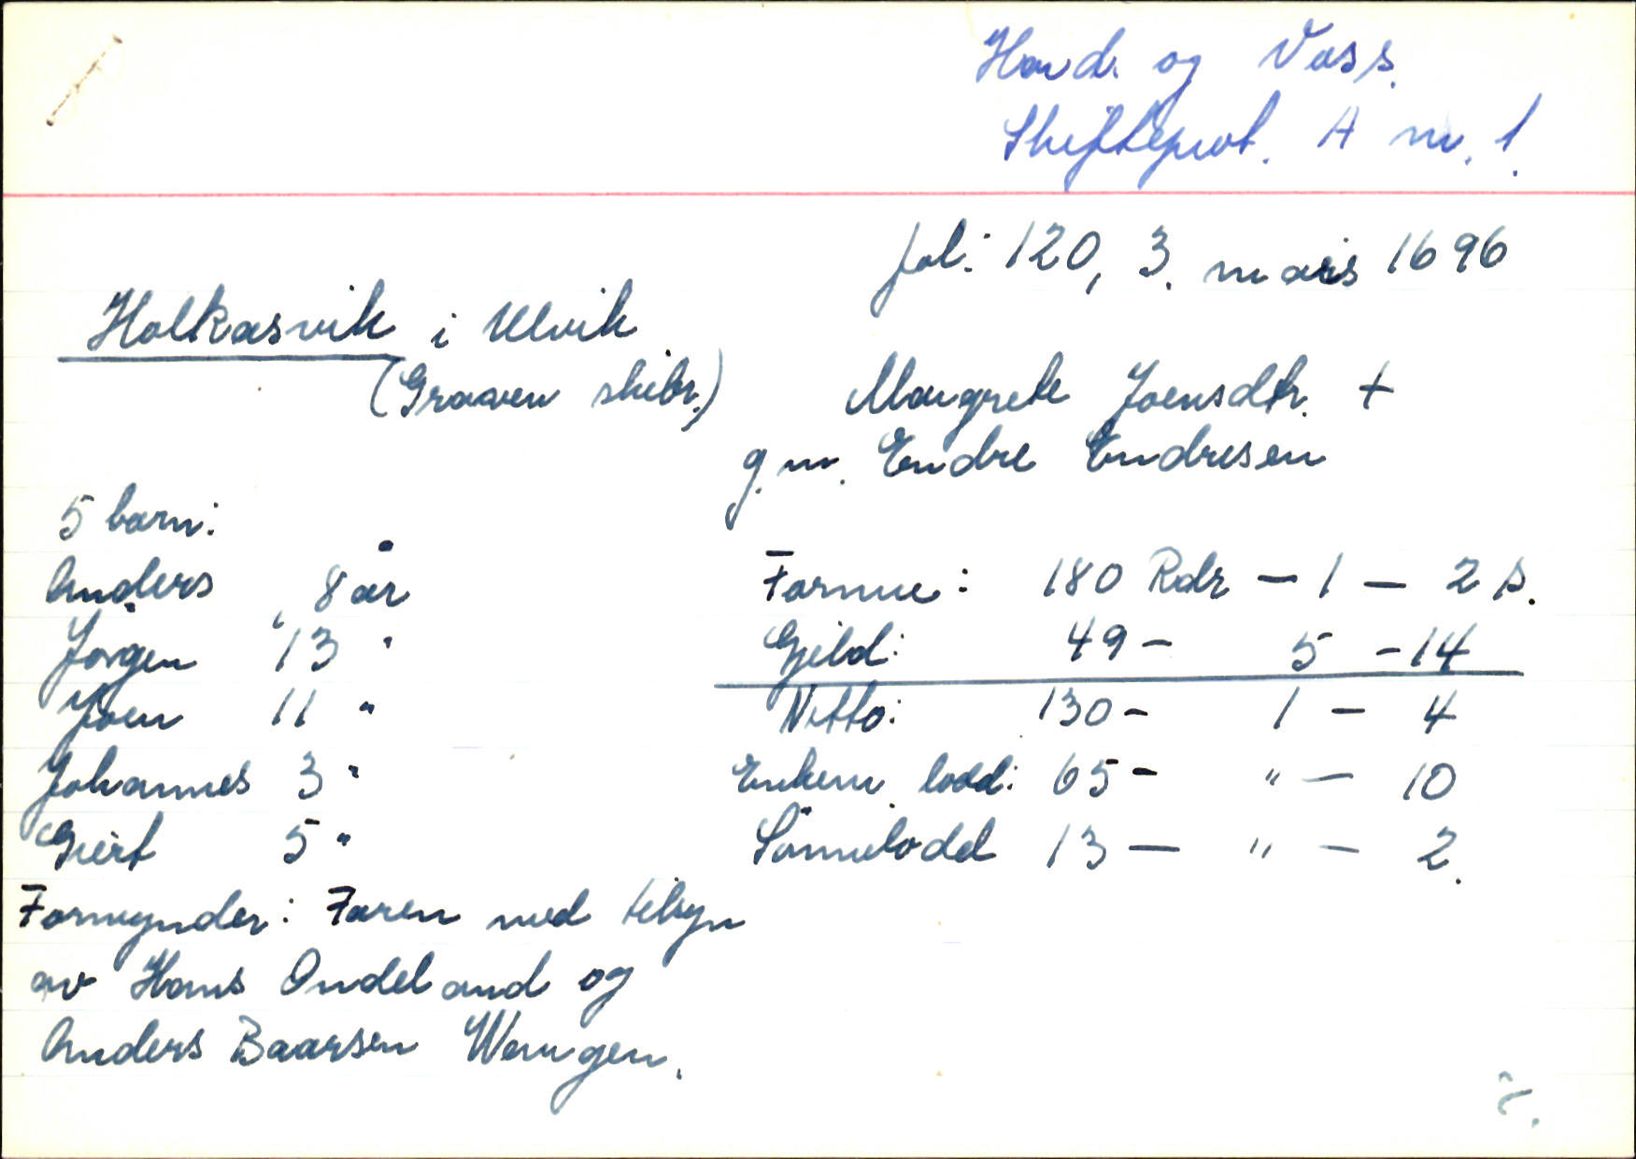 Hard. og Voss.
Skifteprot. A nr. 1.
fol: 120, 3. mars 1696
Holkasvik i Ulvik
(Graaven skibr.)
Margrete Joensdtr. +
g.m. Endre Endresen
5 barn:
Anders 8 år
Jørgen 13 "
Joen 11 "
Johannes 3 "
Giert 5 "
Formue: 180 Rdr – 1 – 2 s.
Gjeld: 49 – 5 – 14
Netto: 130 – 1 – 4
Enkem. lodd: 65 – " – 10
Sønnelodd 13 – " – 2.
Formynder: Faren med tilsyn
av Hans Ondeland og
Anders Baarsen Wamgen.